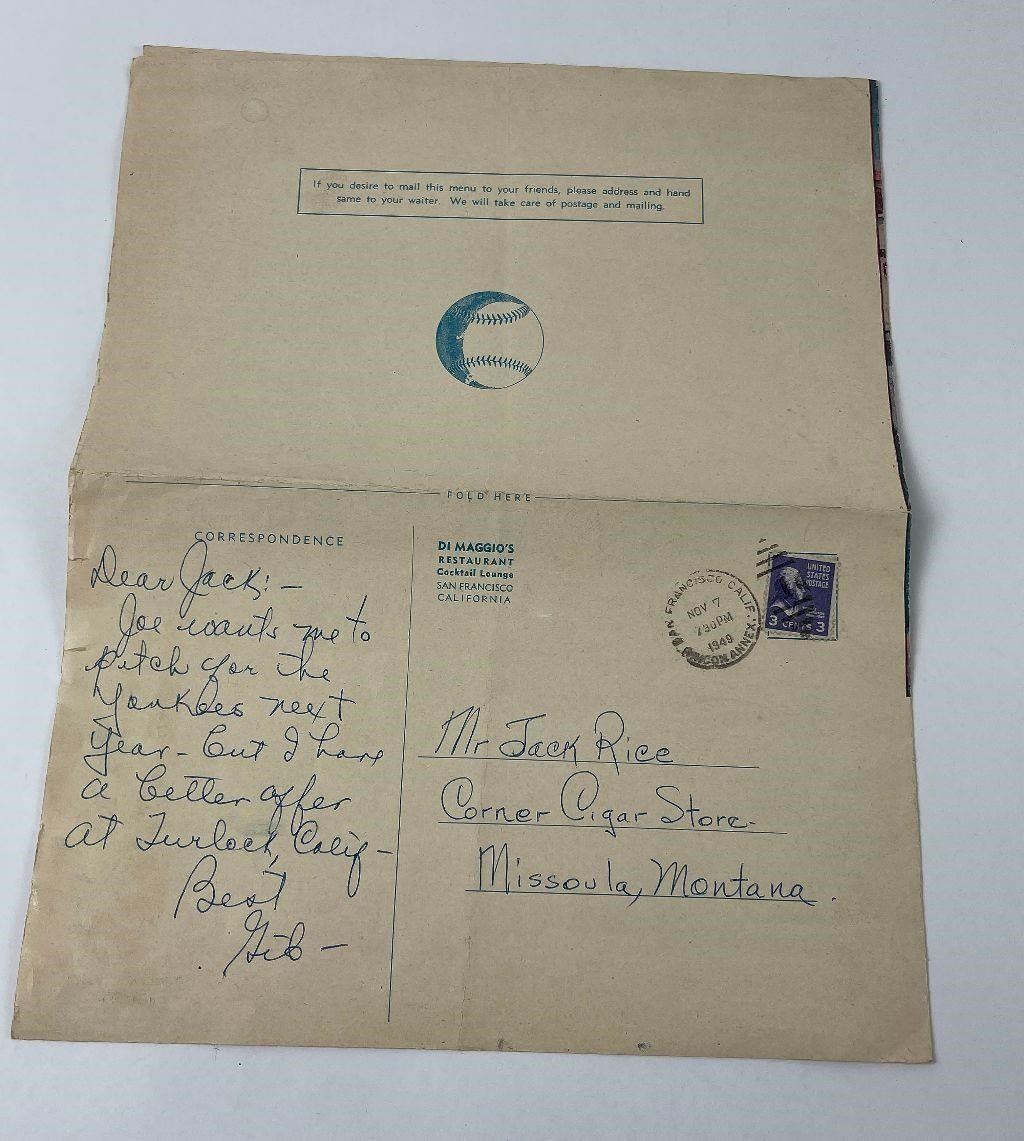 If you desire to mail this menu to your friends, please address and hand
same to your waiter. We will take care of postage and mailing.
FOLD HERE
CORRESPONDENCE
Dear Jack:-
Joe wants me to
pitch for the
Yankees next
year - but I have
a better offer
at Turlock, Calif -
Best
Gib -
DI MAGGIO'S
RESTAURANT
Cocktail Lounge
SAN FRANCISCO
CALIFORNIA
SAN FRANCISCO CALIF.
NOV 7
730 PM
1949
RINCON ANNEX.
UNITED
STATES
POSTAGE
3 CENTS 3
Mr Jack Rice
Corner Cigar Store-
Missoula, Montana.